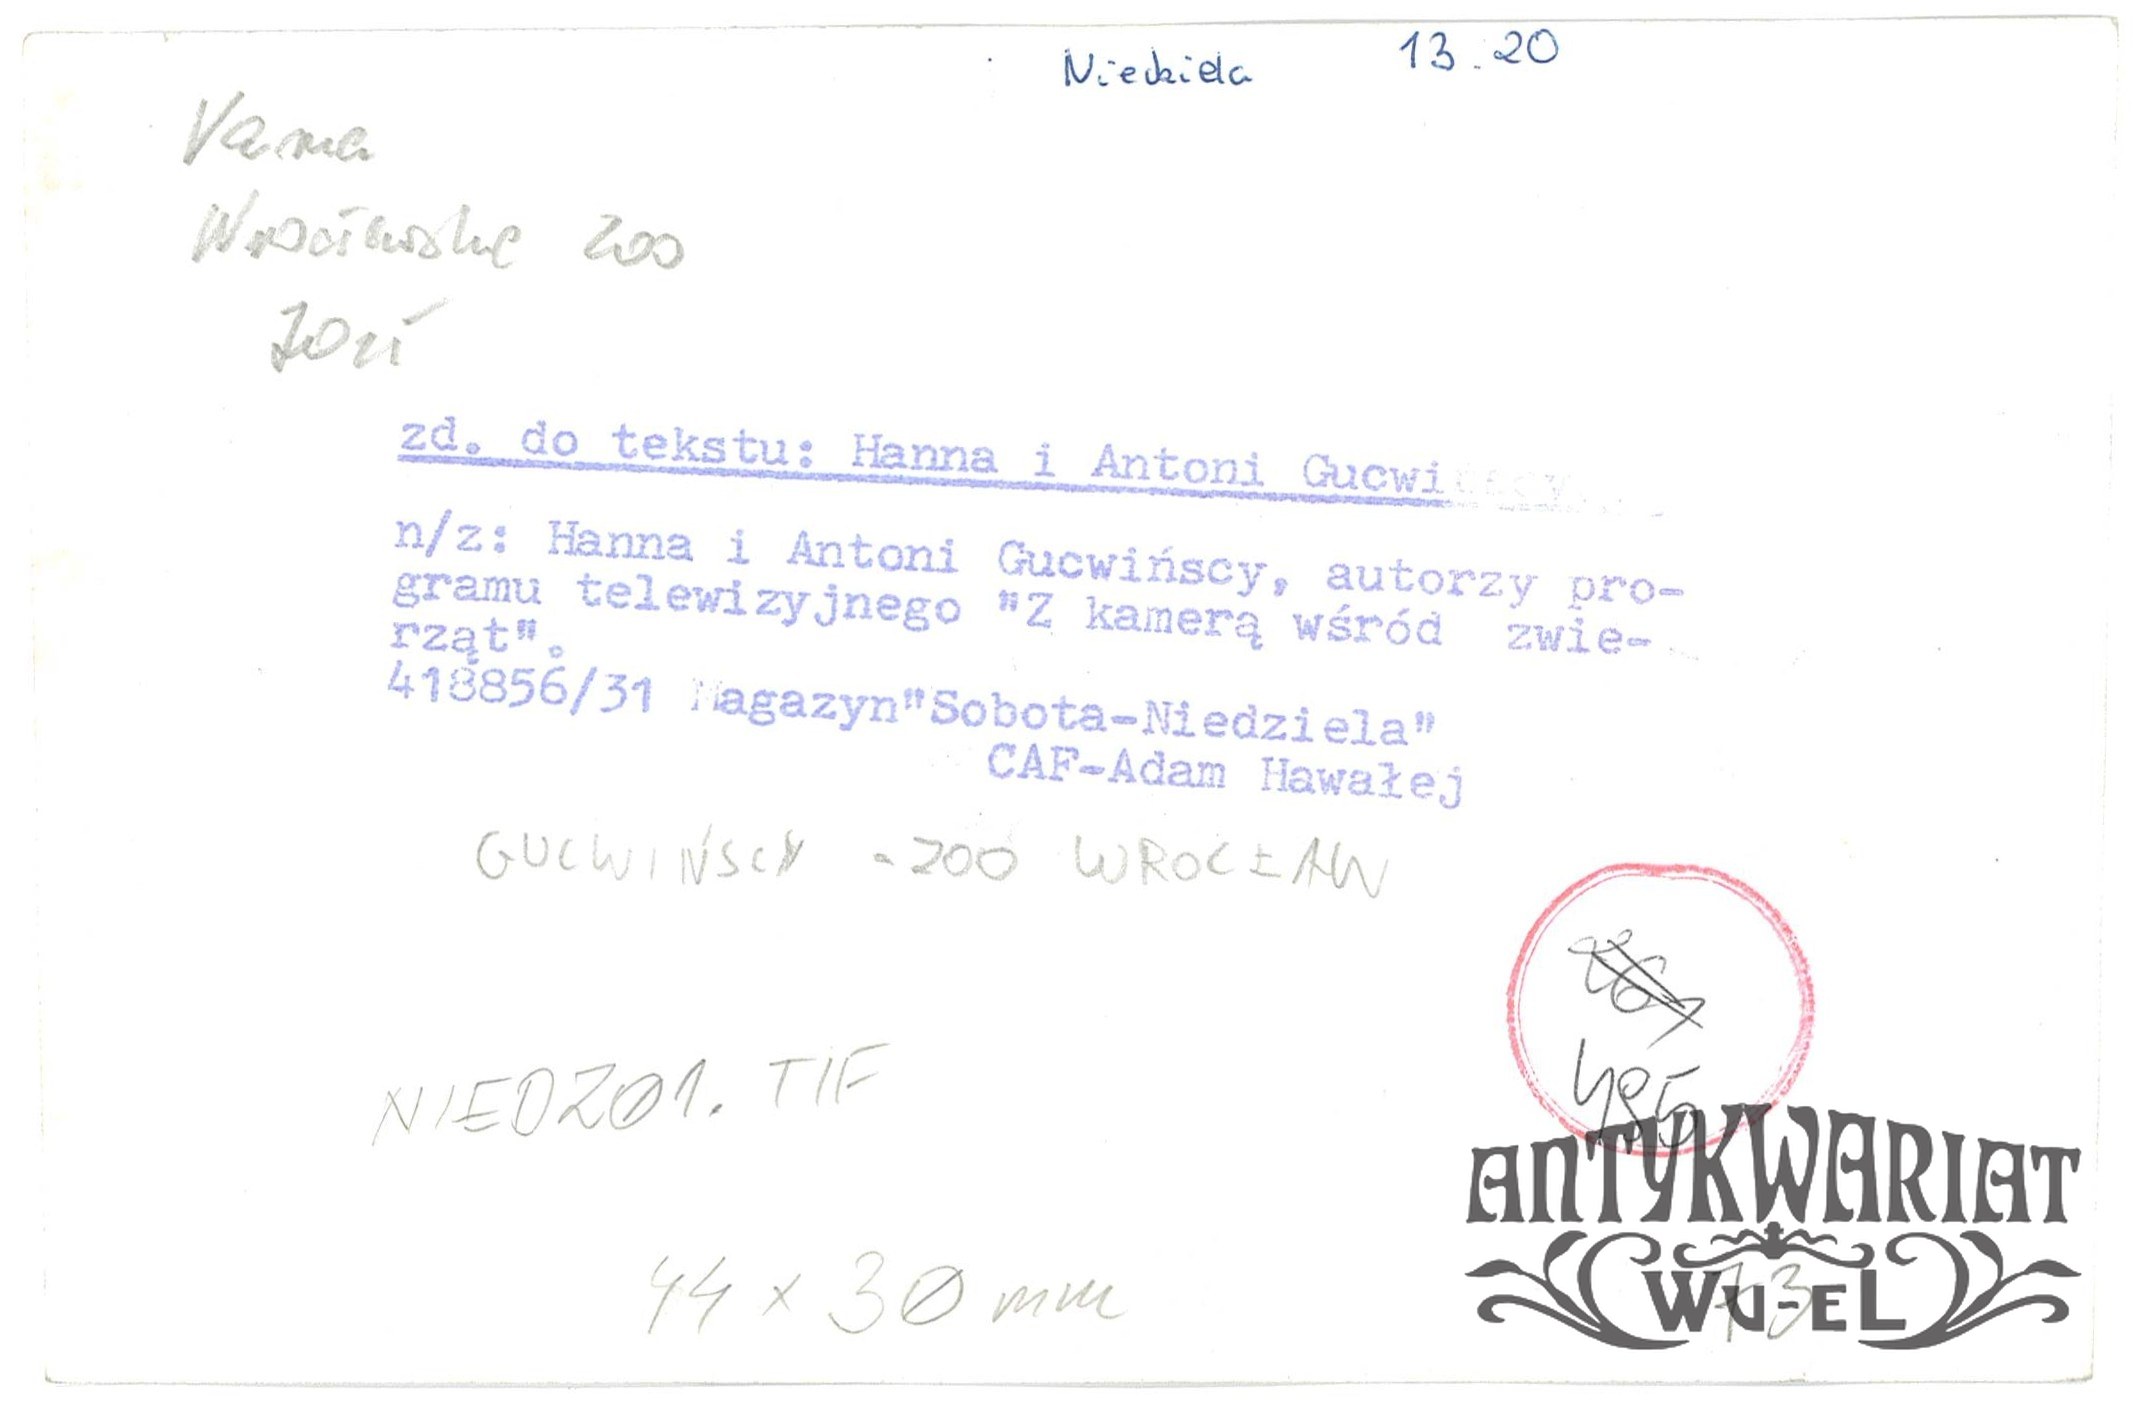 Niedziela 13.20
Wrocławskie ZOO
zd. do tekstu: Hanna i Antoni Gucwińscy.
n/z: Hanna i Antoni Gucwińscy, autorzy pro-
gramu telewizyjnego "Z kamerą wśród zwie-
rząt".
418856/31 Magazyn"Sobota-Niedziela"
CAF-Adam Hawałej
GUCWIŃSCY - ZOO WROCŁAW
NIEDZ01.TIF
495
44 x 30 mm
73
ANTYKWARIAT
WU-EL